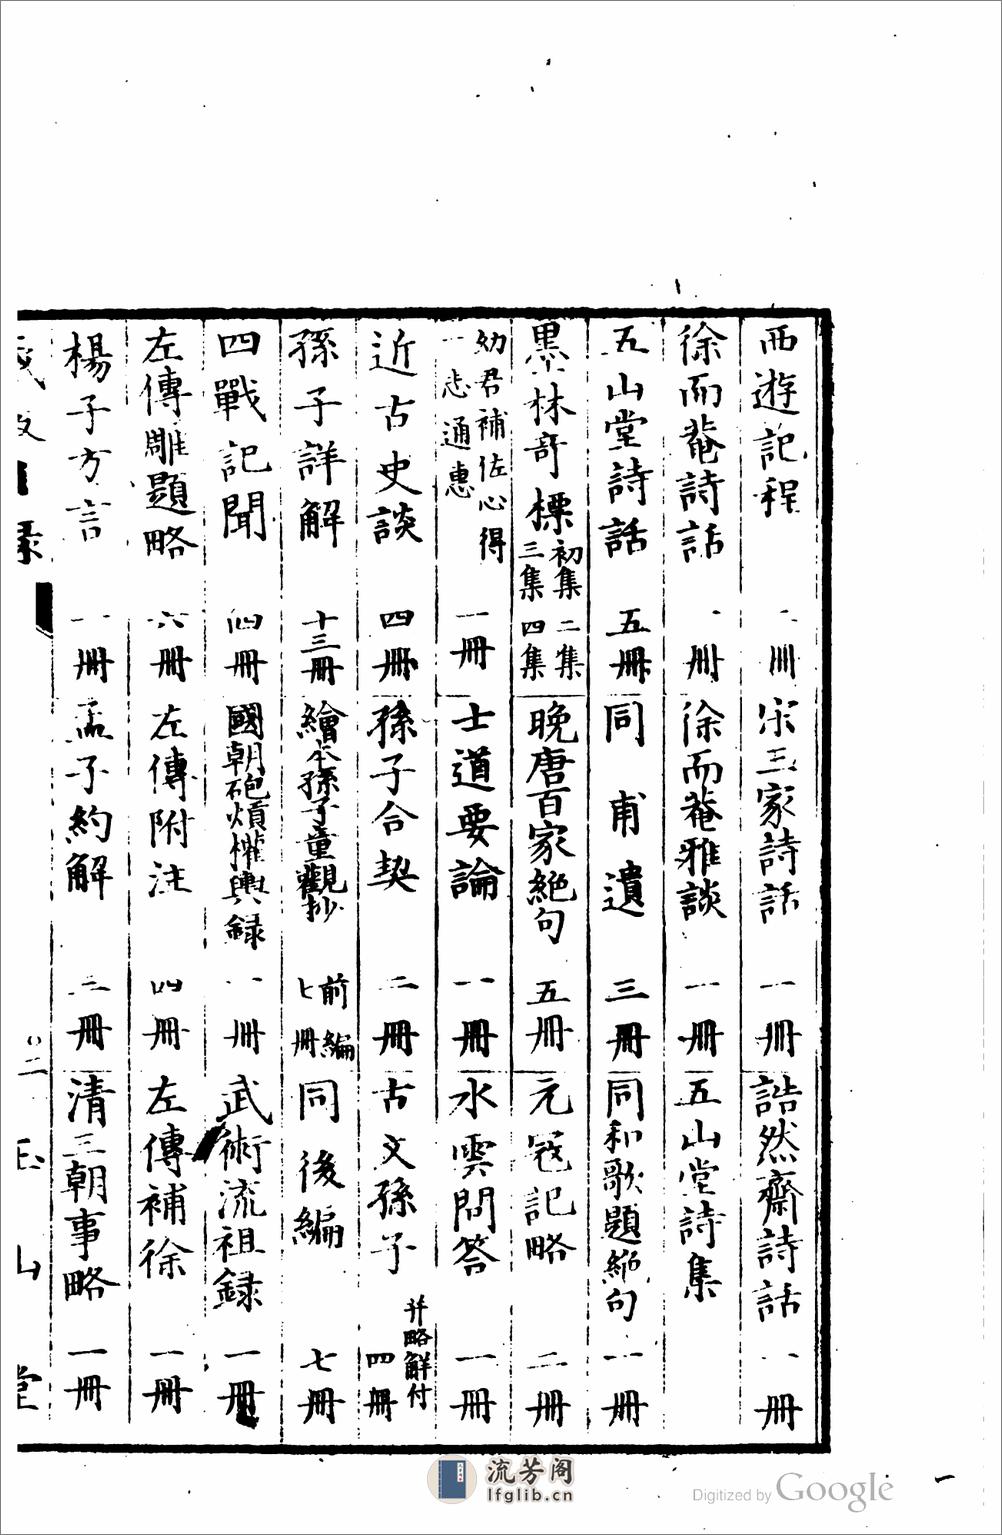 西遊記程 二冊 宋三家詩話 一冊 誥然齋詩話 一冊
徐而菴詩話 一冊 徐而菴雅談 一冊 五山堂詩集
五山堂詩話 五冊 同甫遺 三冊 同和歌題絶句 一冊
墨林奇標 初集 二集 三集 四集 晚唐百家絕句 五冊 元寇記略 二冊
幼君補佐心得 一 志通惠 一冊 士道要論 一冊 水雲問答 一冊
近古史談 四冊 孫子合契 二冊 古文孫子 并略解付 四冊
孫子詳解 十三冊 繪本孫子童觀抄 前編 七冊 同後編 七冊
四戰記聞 四冊 國朝砲熕權輿録 一冊 武術流祖録 一冊
左傳雕題略 六冊 左傳附注 四冊 左傳補徐 一冊
楊子方言 一冊 孟子約解 二冊 清三朝事略 一冊
録 二 玉山堂
流芳阁
lfglib.cn
Digitized by Google